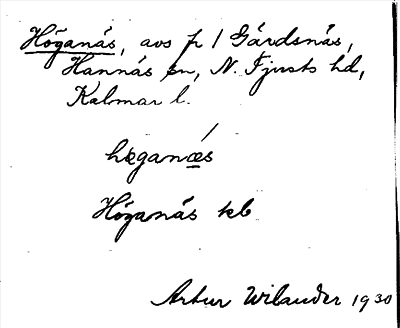 Höganäs, avs fr 1 Gärdsnäs,
Hannäs sn, N. Tjusts hd,
Kalmar l.
hæganæ̲s
Höganäs kb
Artur Wilander 1930